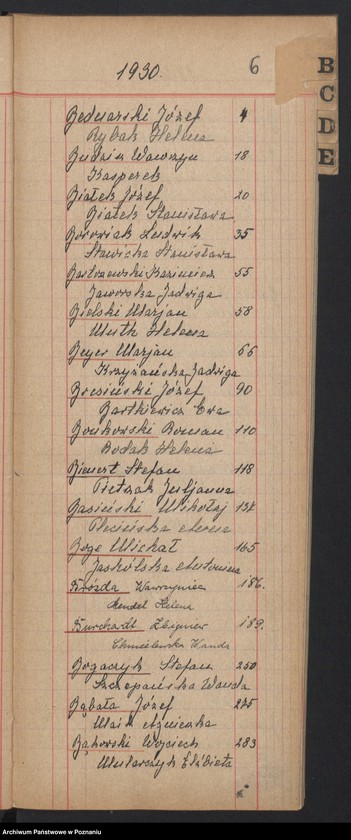 1930.
6
B
C
D
E
Bednarski Józef 4
Rybak Helena
Budzisz Wawrzyn 18
Kasperek
Białek Józef 20
Białek Stanisława
Borowiak Ludwik 35
Stawicka Stanisława
Bartoszewski Kazimierz 55
Jaworska Jadwiga
Bielski Marjan 58
Muth Helena
Beyer Marjan 66
Krzyżańska Jadwiga
Józef 90
Bartkiewicz Ewa
Bonkowski Roman 110
Bodak Helena
Bienert Stefan 118
Pietrzak Juljanna
Basiński Mikołaj 134
Boge Michał 165
Jaskólska Antonina
Brózda Wawrzyniec 186.
Mendel Helena
Burchardt Zbigniew 189.
Chmielewska Wanda
Bogaczyk Stefan 250
Szczepańska Wanda
Bąbała Józef 275
Agnieszka
Bąkowski Wojciech 283
Mularczyk Elżbieta
Archiwum Państwowe w Poznaniu
szukajwarchiwach.gov.pl